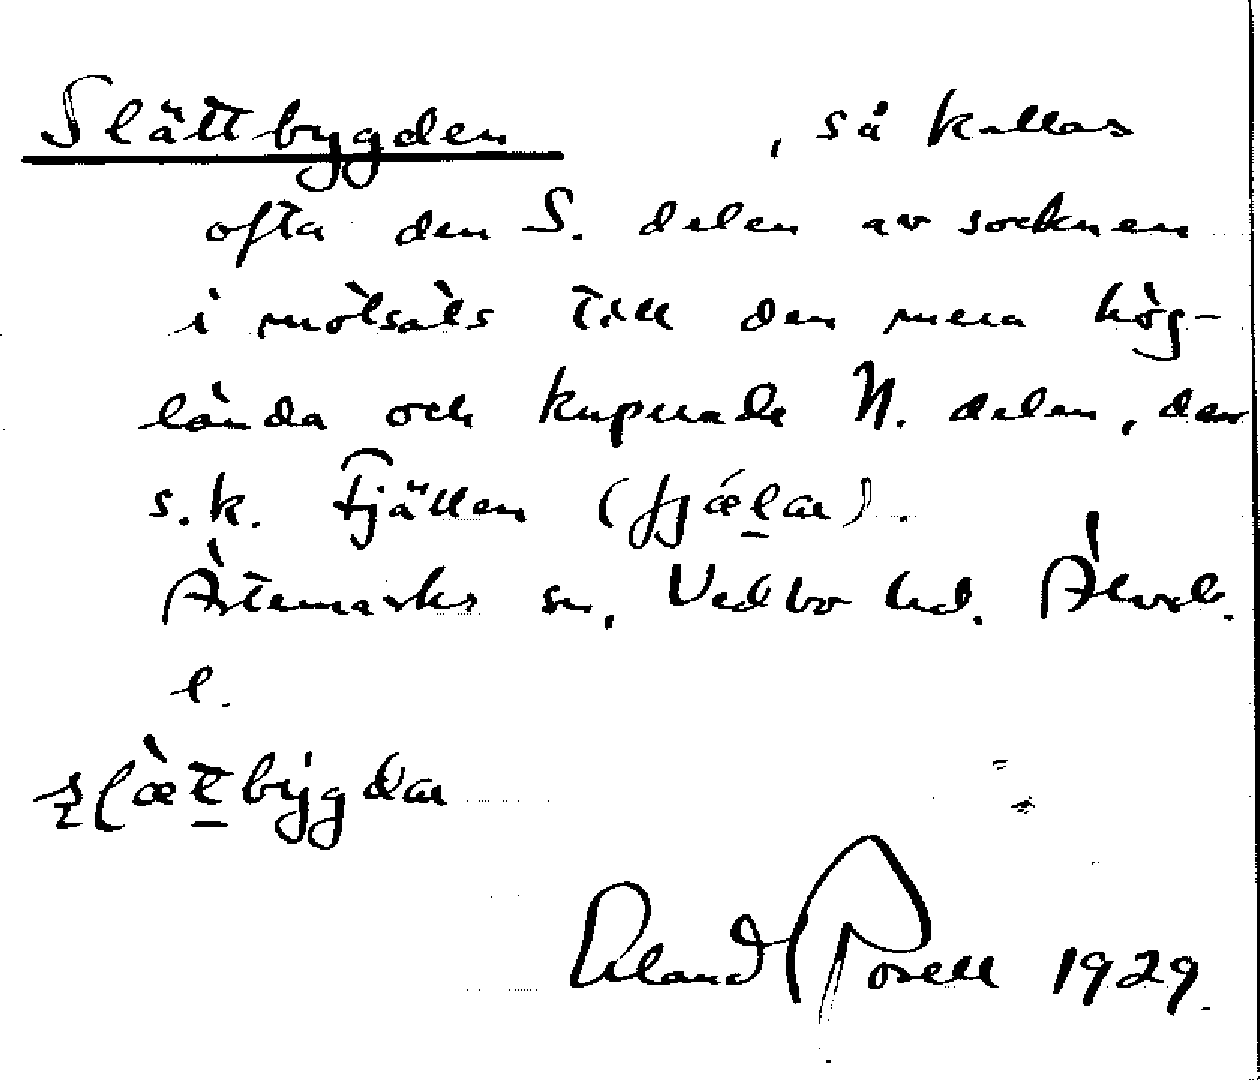 Slättbygden, så kallas
ofta den S. delen av socknen
i motsats till den mera hög-
lända och kuperade N. delen, den
s.k. Fjällen (fjǽl̲ar).
Ärtemarks sn, Vedbo hd. Älvsb.
l.
slæ̀t̲býgdar
Erland Rosell 1929.